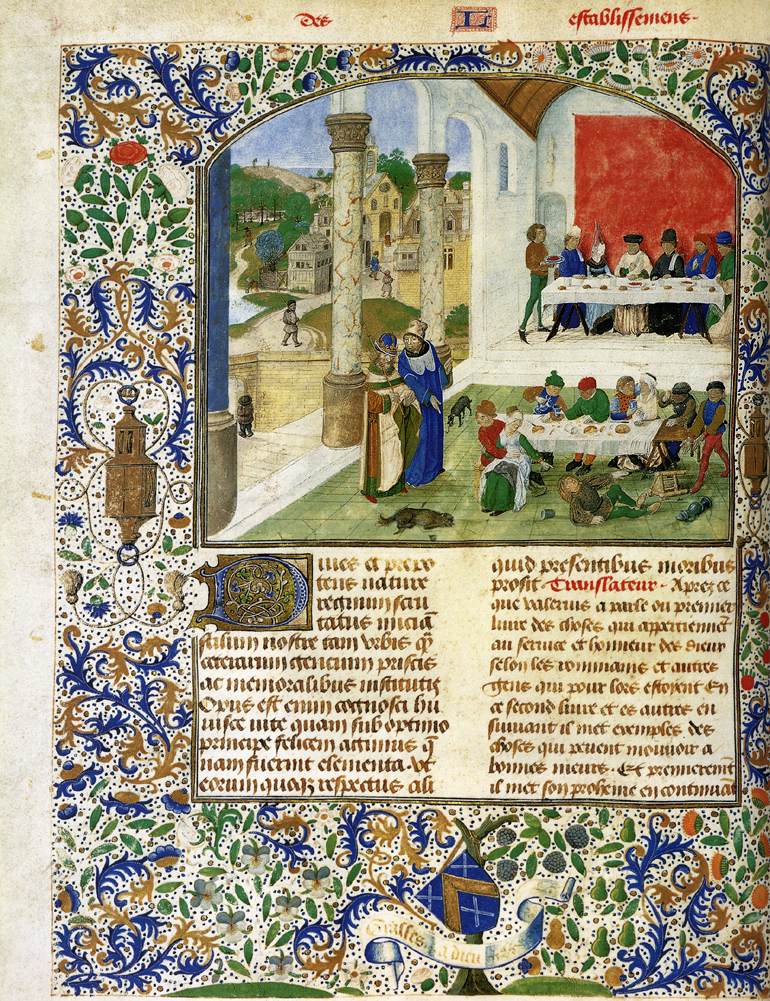 Des L establissemens.
Diues et prepo
tens nature
regnum scru
tatus iniciā
stilum nostre tam vrbis q̄
ceterarum gentium priscis
ac memoralibus institutis
Opus est enim cognosci hu
iusce vite quam sub optimo
principe felicem agimus q̄
nam fuerint elementa vt
eorum quoqz respectus ali
quid presentibus moribus
prosit. Translateur. Aprez ce
que valerius a parle ou premier
liure des choses qui appertiennēt
au seruice et honneur des dieux
selon les rommains et autres
gens qui pour lors estoyent En
ce second liure et es autres en
suiuant il met exemples des
choses qui peuent mouuoir a
bonnes meurs. Et premieremēt
il met son proheme en continuāt
adieu